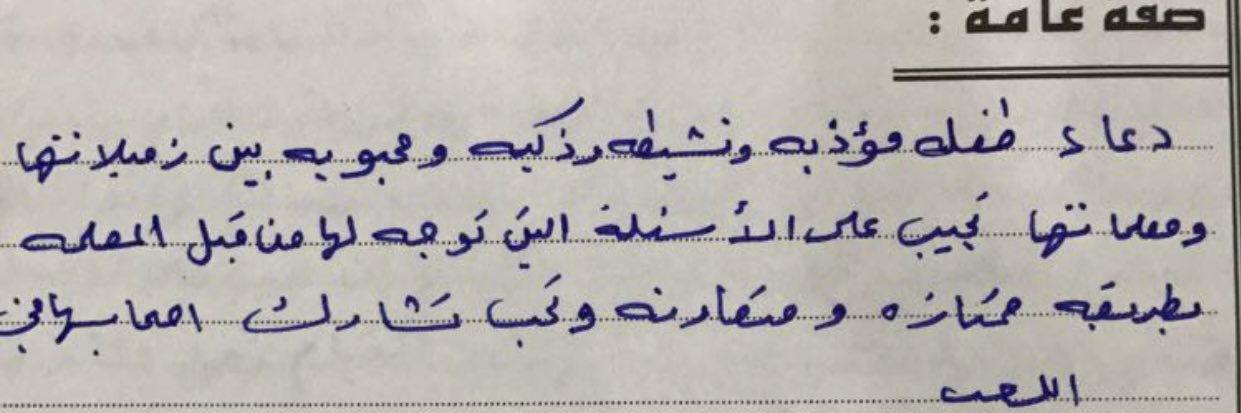 صفه عامة :
دعاء طفله مؤذبه ونشيطه وذكيه ومحبوبه بين زميلاتها
ومعلماتها تجيب على الأسئلة التي توجه لها من قبل المعلمه
بطريقه ممتازه و متعاونه وتحب تشارك اصحابها في
اللعب